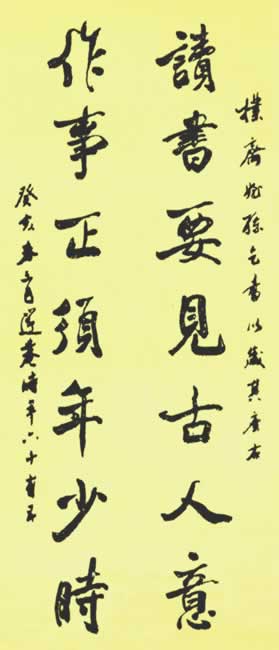 樸齋姪孫乞書以箴其座右
讀書要見古人意
作事正須年少時
癸亥春時年六十有五